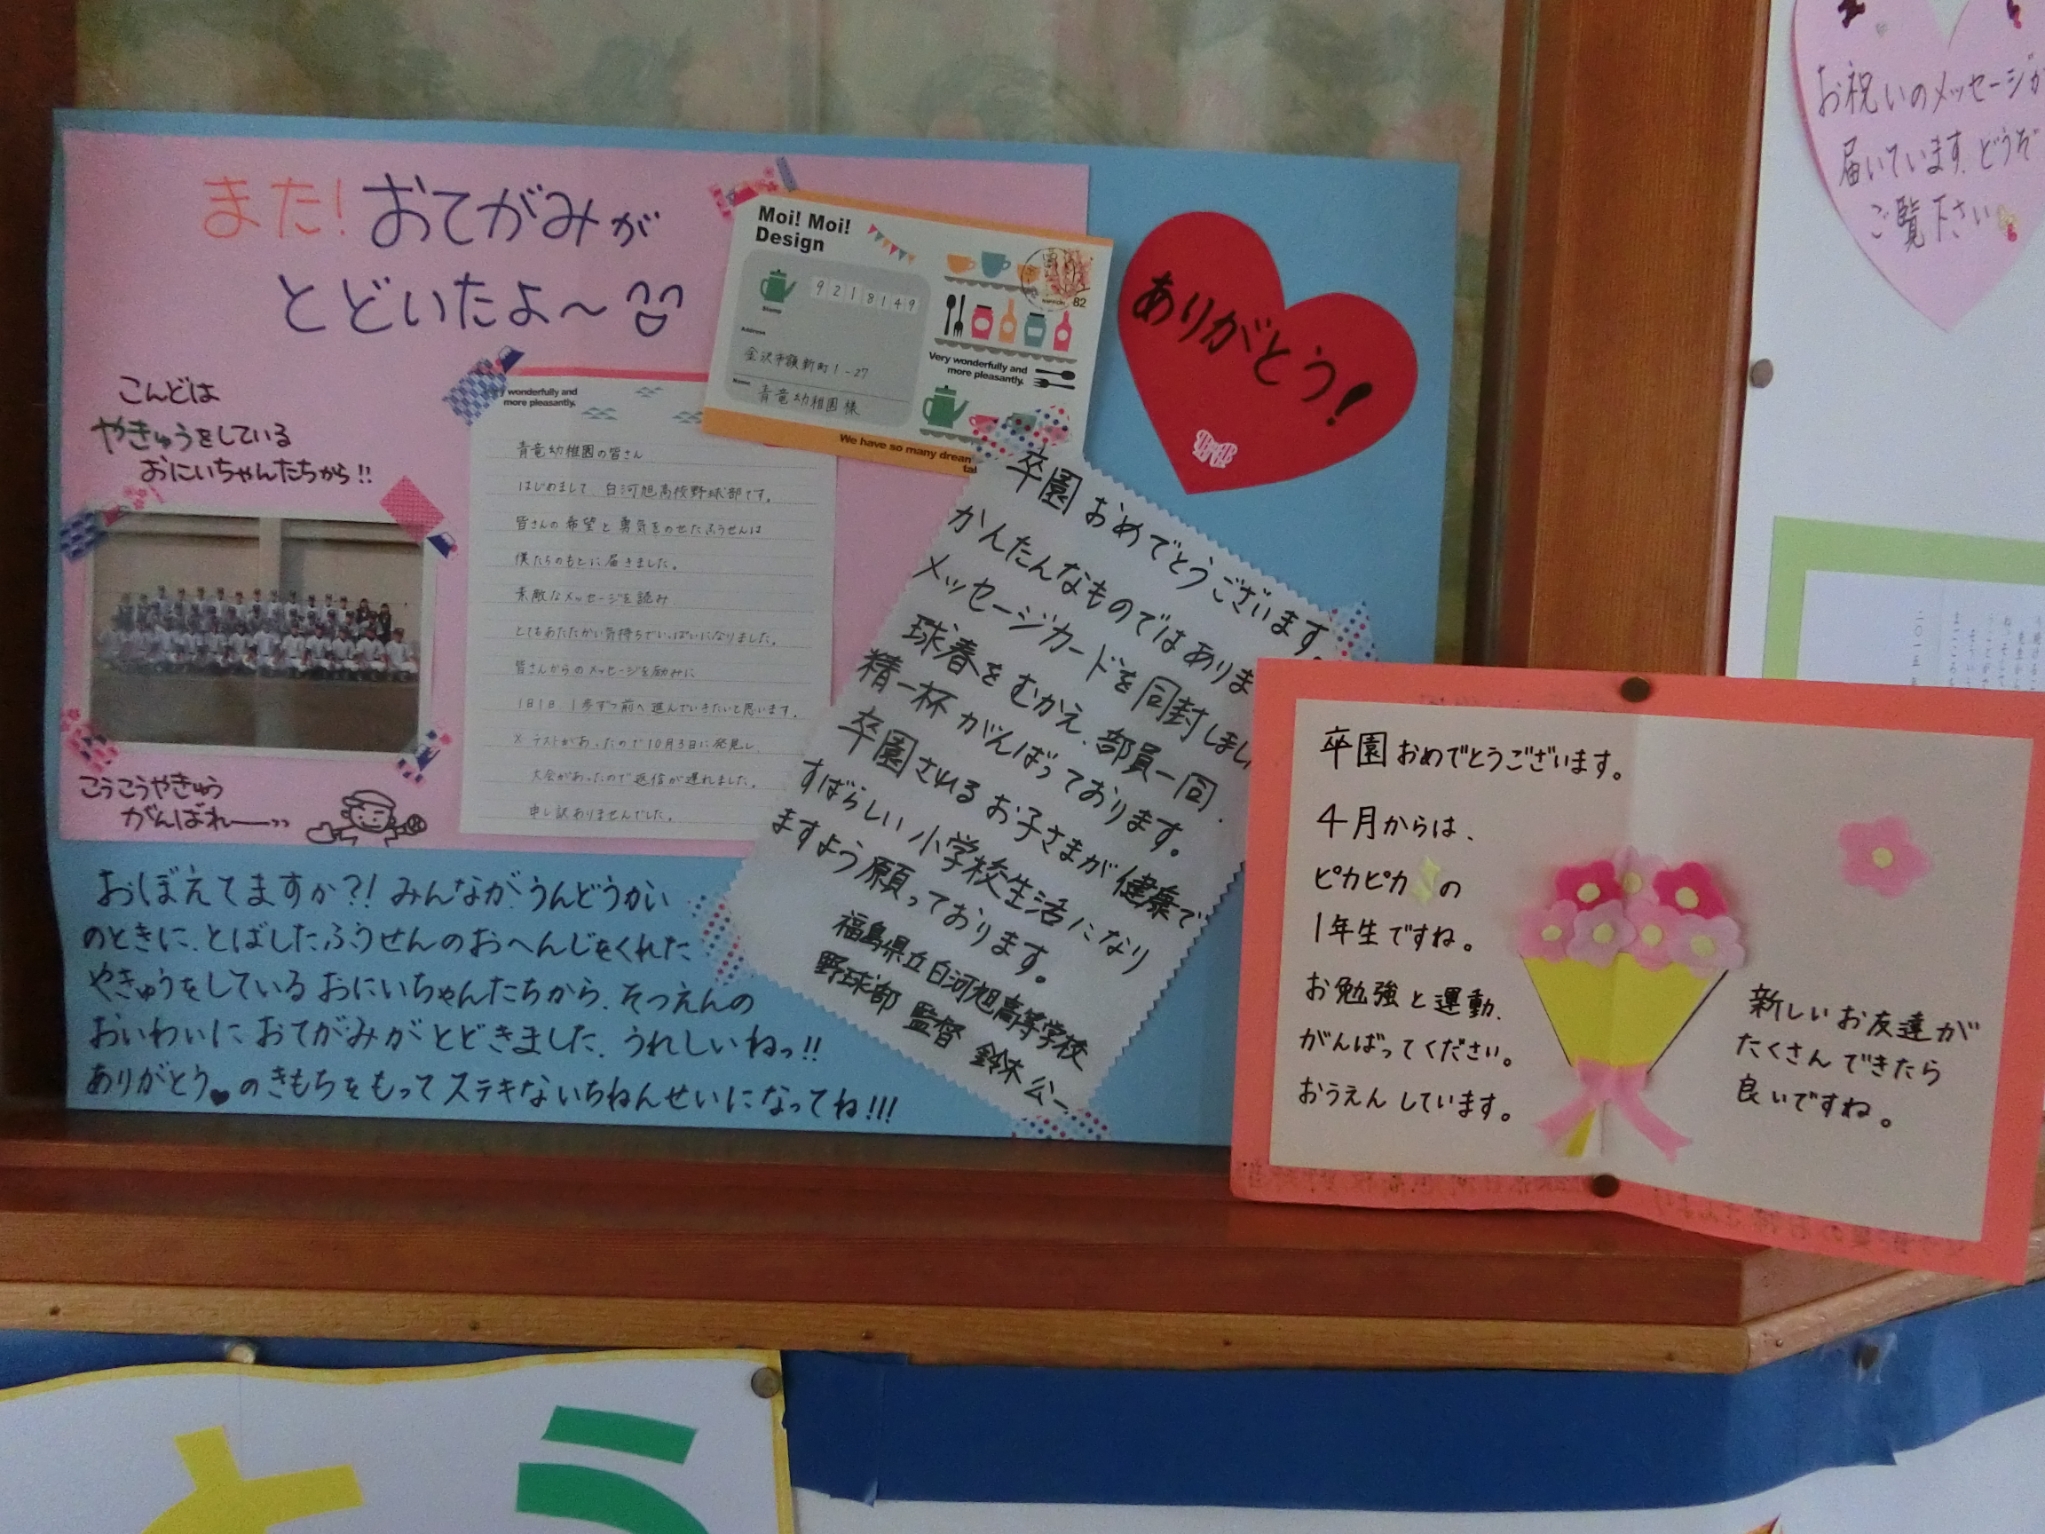 また!おてがみが
とどいたよ〜
こんどは
やきゅうをしている
おにいちゃんたちから!!
こうこうやきゅう
がんばれー
Moi! Moi!
Design
9218149
Stamp
Address
金沢市額新町1-27
Name
青竜幼稚園様
82
Very wonderfully and
more pleasantly.
We have so many dream
wonderfully and
more pleasantly.
青竜幼稚園の皆さん
はじめまして、白河旭高校野球部です。
皆さんの希望と勇気をのせたふうせんは
僕たちのもとに届きました。
素敵なメッセージを読み
とてもあたたかい気持ちでいっぱいになりました。
皆さんからのメッセージを励みに
1日1日、1歩ずつ前へ進んでいきたいと思います。
※テストがあったので10月3日に発見し、
大会があったので返信が遅れました。
申し訳ありませんでした。
ありがとう!
卒園おめでとうございます。
かんたんなものではありま
メッセージカードを同封しまし
球春をむかえ、部員一同、
精一杯がんばっております。
卒園されるお子さまが健康で
すばらしい小学校生活になり
ますよう願っております。
福島県立白河旭高等学校
野球部 監督 鈴木公一
おぼえてますか?!みんながうんどうかい
のときに、とばしたふうせんのおへんじをくれた
やきゅうをしているおにいちゃんたちから、そつえんの
おいわいにおてがみがとどきました。うれしいねっ!!
ありがとう♥のきもちをもってステキないちねんせいになってね!!!
卒園おめでとうございます。
4月からは、
ピカピカの
1年生ですね。
お勉強と運動、
がんばってください。
おうえんしています。
新しいお友達が
たくさんできたら
良いですね。
お祝いのメッセージが
届いています。どうぞ
ご覧下さい
とう